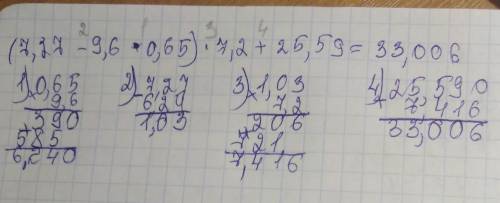 2 1 3 4
(7,27 - 9,6 · 0,65) · 7,2 + 25,59 = 33,006
1) 0,65
× 96
390
585
6,240
2) 7,27
- 6,24
1,03
3) 1,03
× 7,2
206
721
7,416
4) 25,590
+ 7,416
33,006